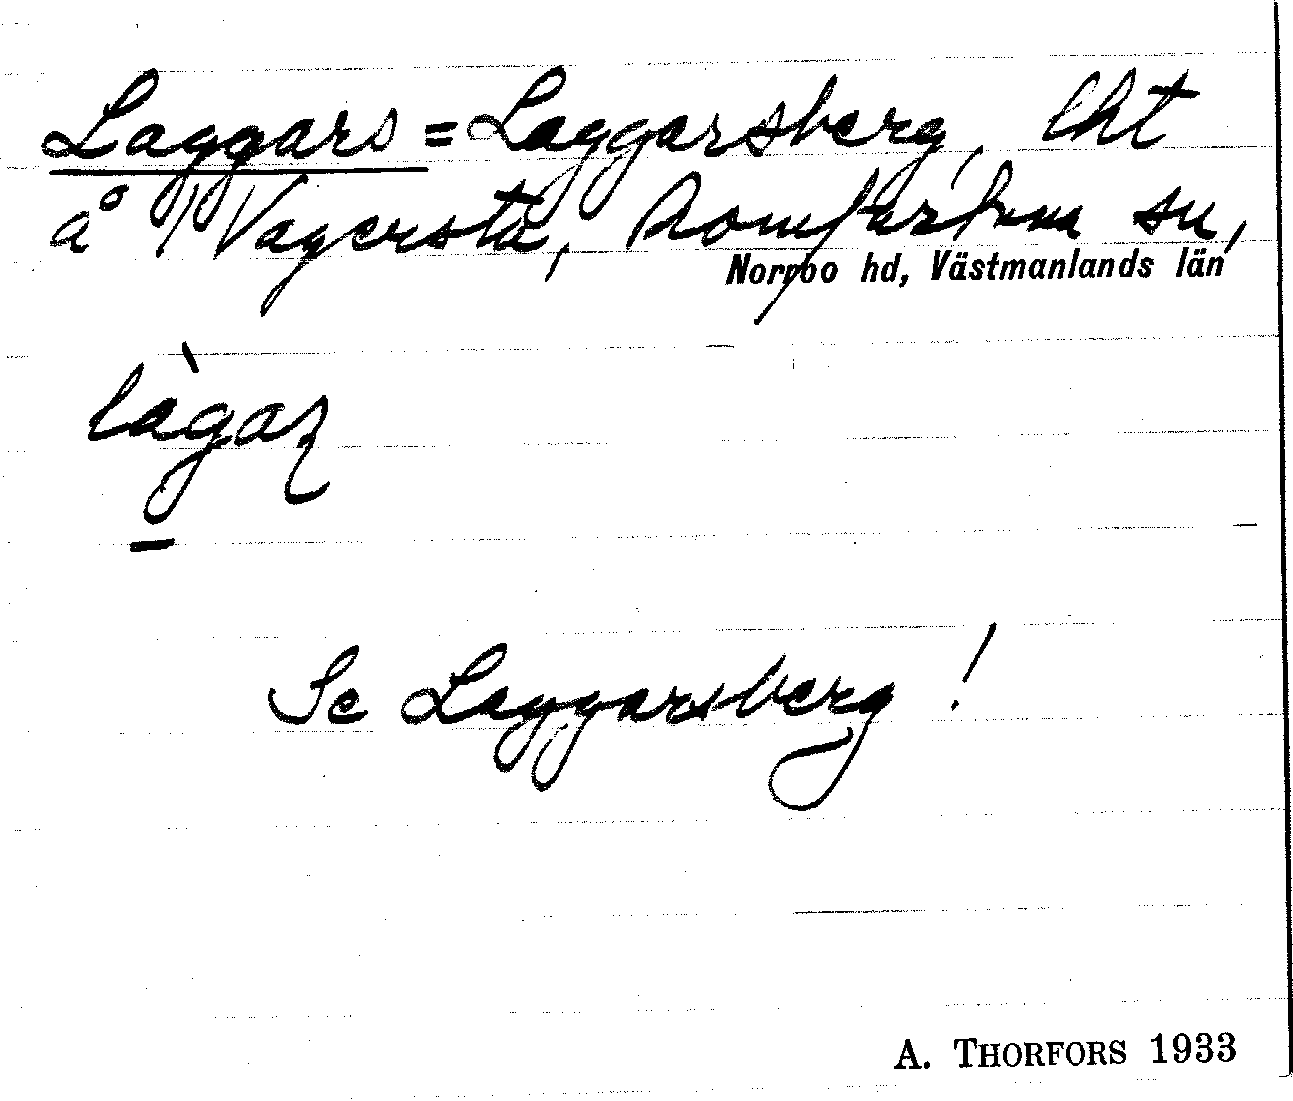 Laggars = Laggarsberg, lht
å Vagersta, Romfartuna sn,
Norrbo hd, Västmanlands län
làgaʐ
Se Laggarsberg!
A. THORFORS 1933